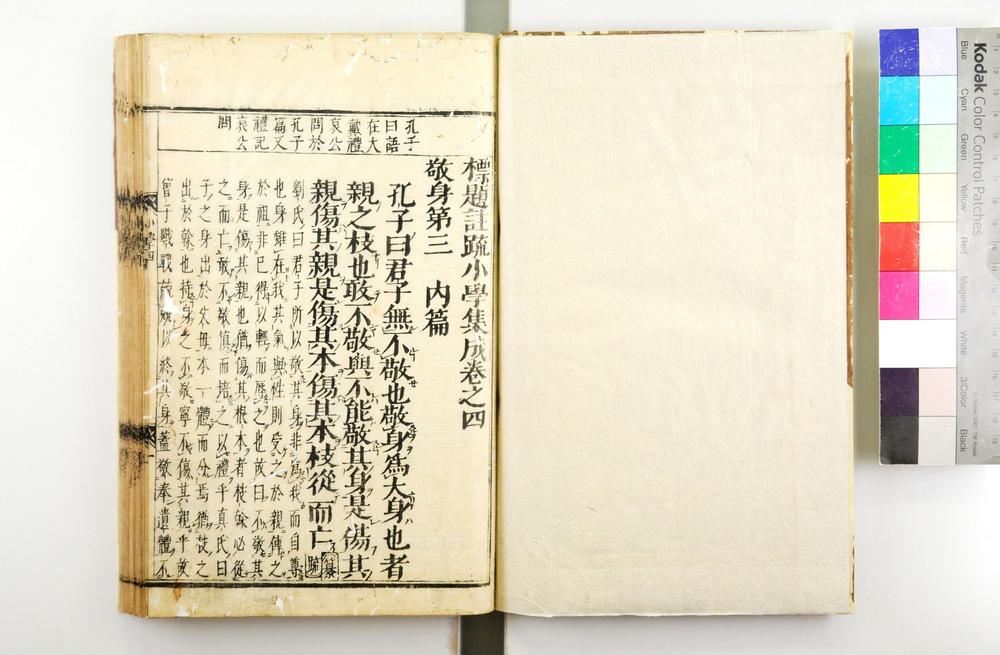 標題註疏小學集成卷之四
敬身第三　內篇
孔子曰君子無不敬也敬身爲大身也者
親之枝也敢不敬與不能敬其身是傷其
親傷其親是傷其本傷其本枝從而亡 纂疏
劉氏曰君子所以敬其身非爲我而自尊
也身雖在我其氣與性則受之於親傳之
於祖非已得以輕而辱之也故曰不敬其
身是傷其親也猶傷其根本者枝榦必從
之而亡敢不敬慎而培之以禮乎真氏曰
子之身出於父母本一體而分焉猶枝之
出於榦也持身之不敬寧不傷其親乎故
曾子戰戰兢兢以終其身蓋敬奉遺體不
孔子
曰語
在大
戴禮
哀公
問於
孔子
篇又
禮記
哀公
問
小學四
一
Kodak Color Control Patches
Blue
Cyan
Green
Yellow
Red
Magenta
White
3/Color
Black